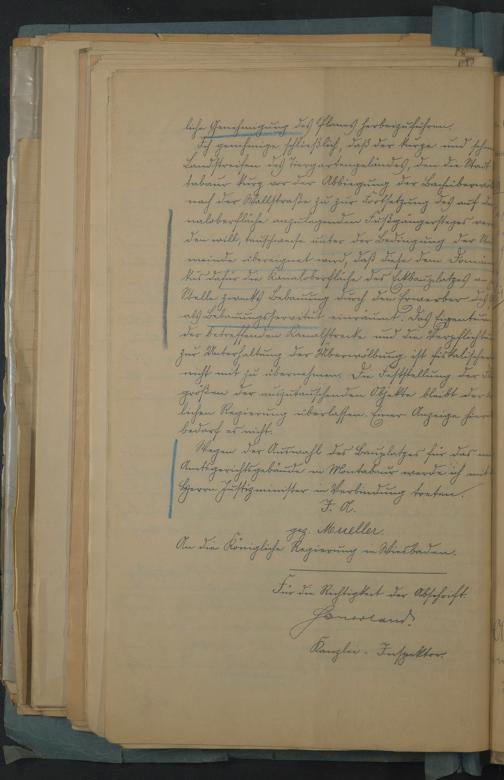 liche Genehmigung des Planes herbeizuführen.
Ich genehmige schließlich, daß der kurze und schm
Landstreifen des Tiergartengeländes, den die Stadt
tabaur kurz vor der Abbiegung der Bachüberwöl
nach der Wallstraße zu zur Fortsetzung des auf
naloberfläche anzulegenden Fußgängersteges ver
den will, tauschweise unter der Bedingung der
meinde übereignet wird, daß diese dem Domänen
kus dafür die Kanaloberfläche des Eckbauplatzes
Stelle zwecks Bebauung durch den Erwerber des
als Bebauungsservitut einräumt. Das Eigentum
der betreffenden Kanalstrecke und die Verpflichtu
zur Unterhaltung der Überwölbung ist fiskalischer
nicht mit zu übernehmen. Die Feststellung der
größen der auszutauschenden Objekte bleibt der
lichen Regierung überlassen. Einer Anzeige hier
bedarf es nicht.
Wegen der Auswahl des Bauplatzes für das
Amtsgerichtsgebäude in Montabaur werde ich mit
Herrn Justizminister in Verbindung treten.
I. A.
gez. Mueller.
An die Königliche Regierung in Wiesbaden.
Für die Richtigkeit der Abschrift.
Kanzlei-Inspektor.